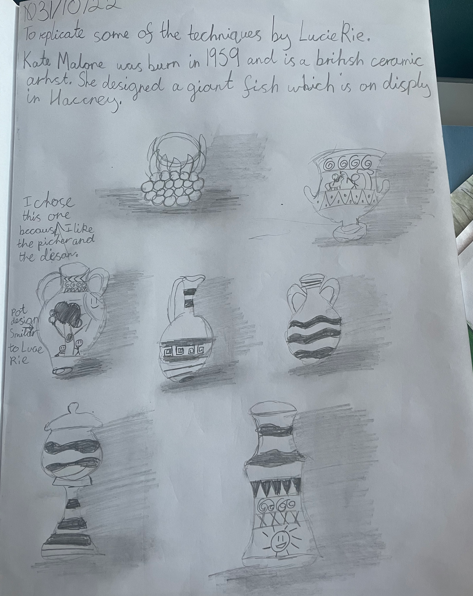 03/10/22
To replicate some of the techniques by Lucie Rie.
Kate Malone was burn in 1959 and is a british ceramic
artist. She designed a giant fish which is on disply
in Haccney.
I chose
this one
becaus I like
the picher and
the desans.
Pot
design
Smiler
to Lucie
Rie